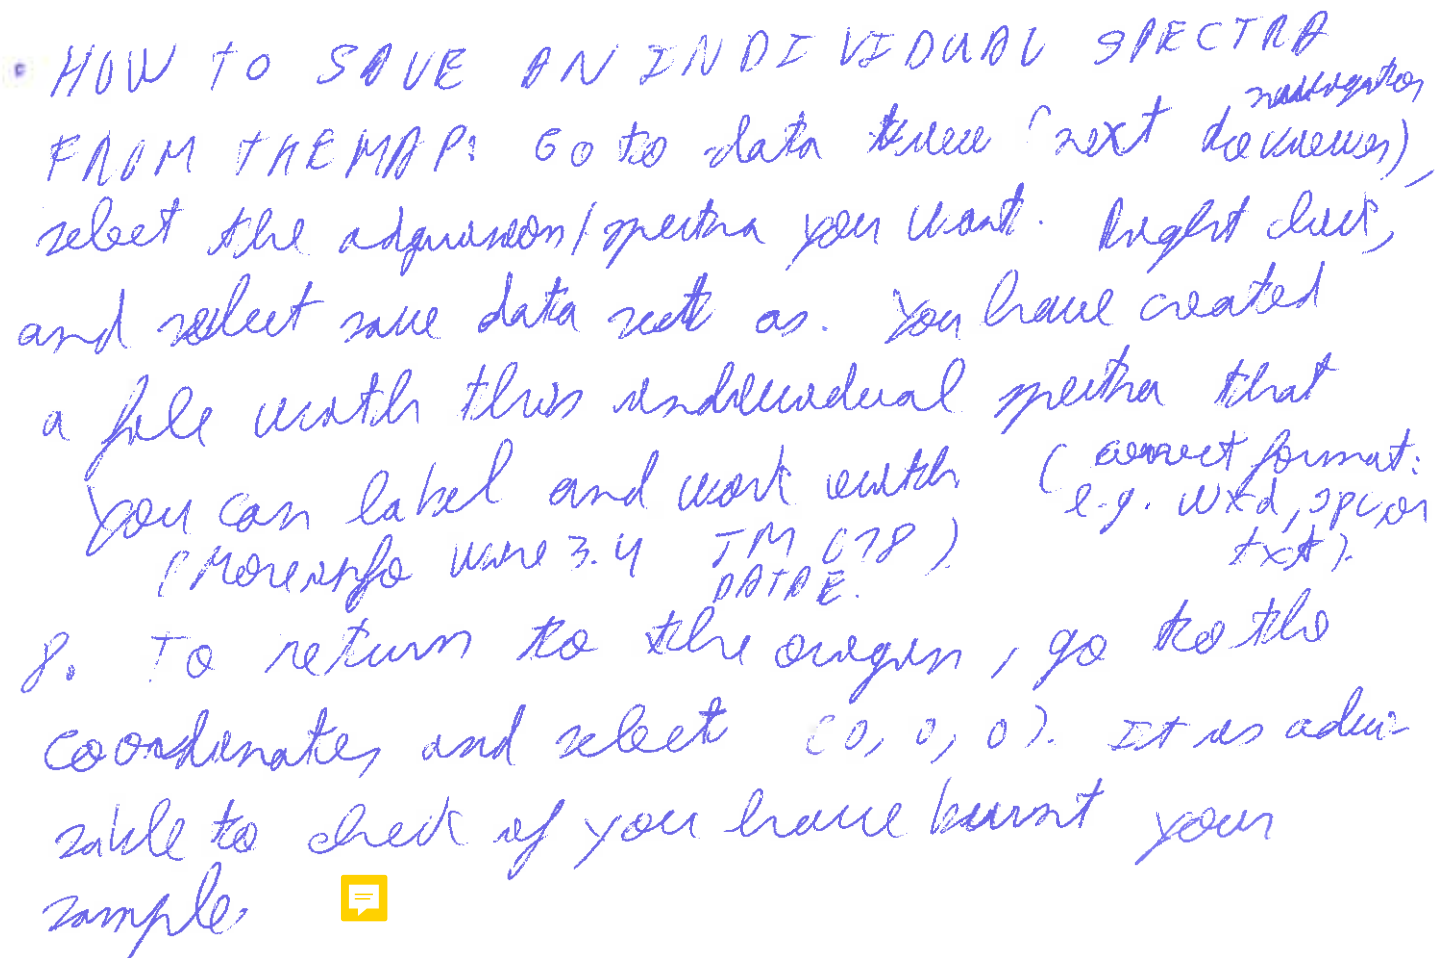 • HOW TO SAVE AN INDIVIDUAL SPECTRA
FROM THE MAP: Go to data tree (next to navigation viewer),
select the adquision/spectra you want. Right click,
and select save data set as. You have created
a file with this individual spectra that
you can label and work with (correct format:
e.g. wxd, spc, or
txt).
(More info Wire 3.4 TM 078)
8. To return to the origin, go to the
coordinates and select (0, 0, 0). It is advi-
sable to check if you have burnt your
sample.